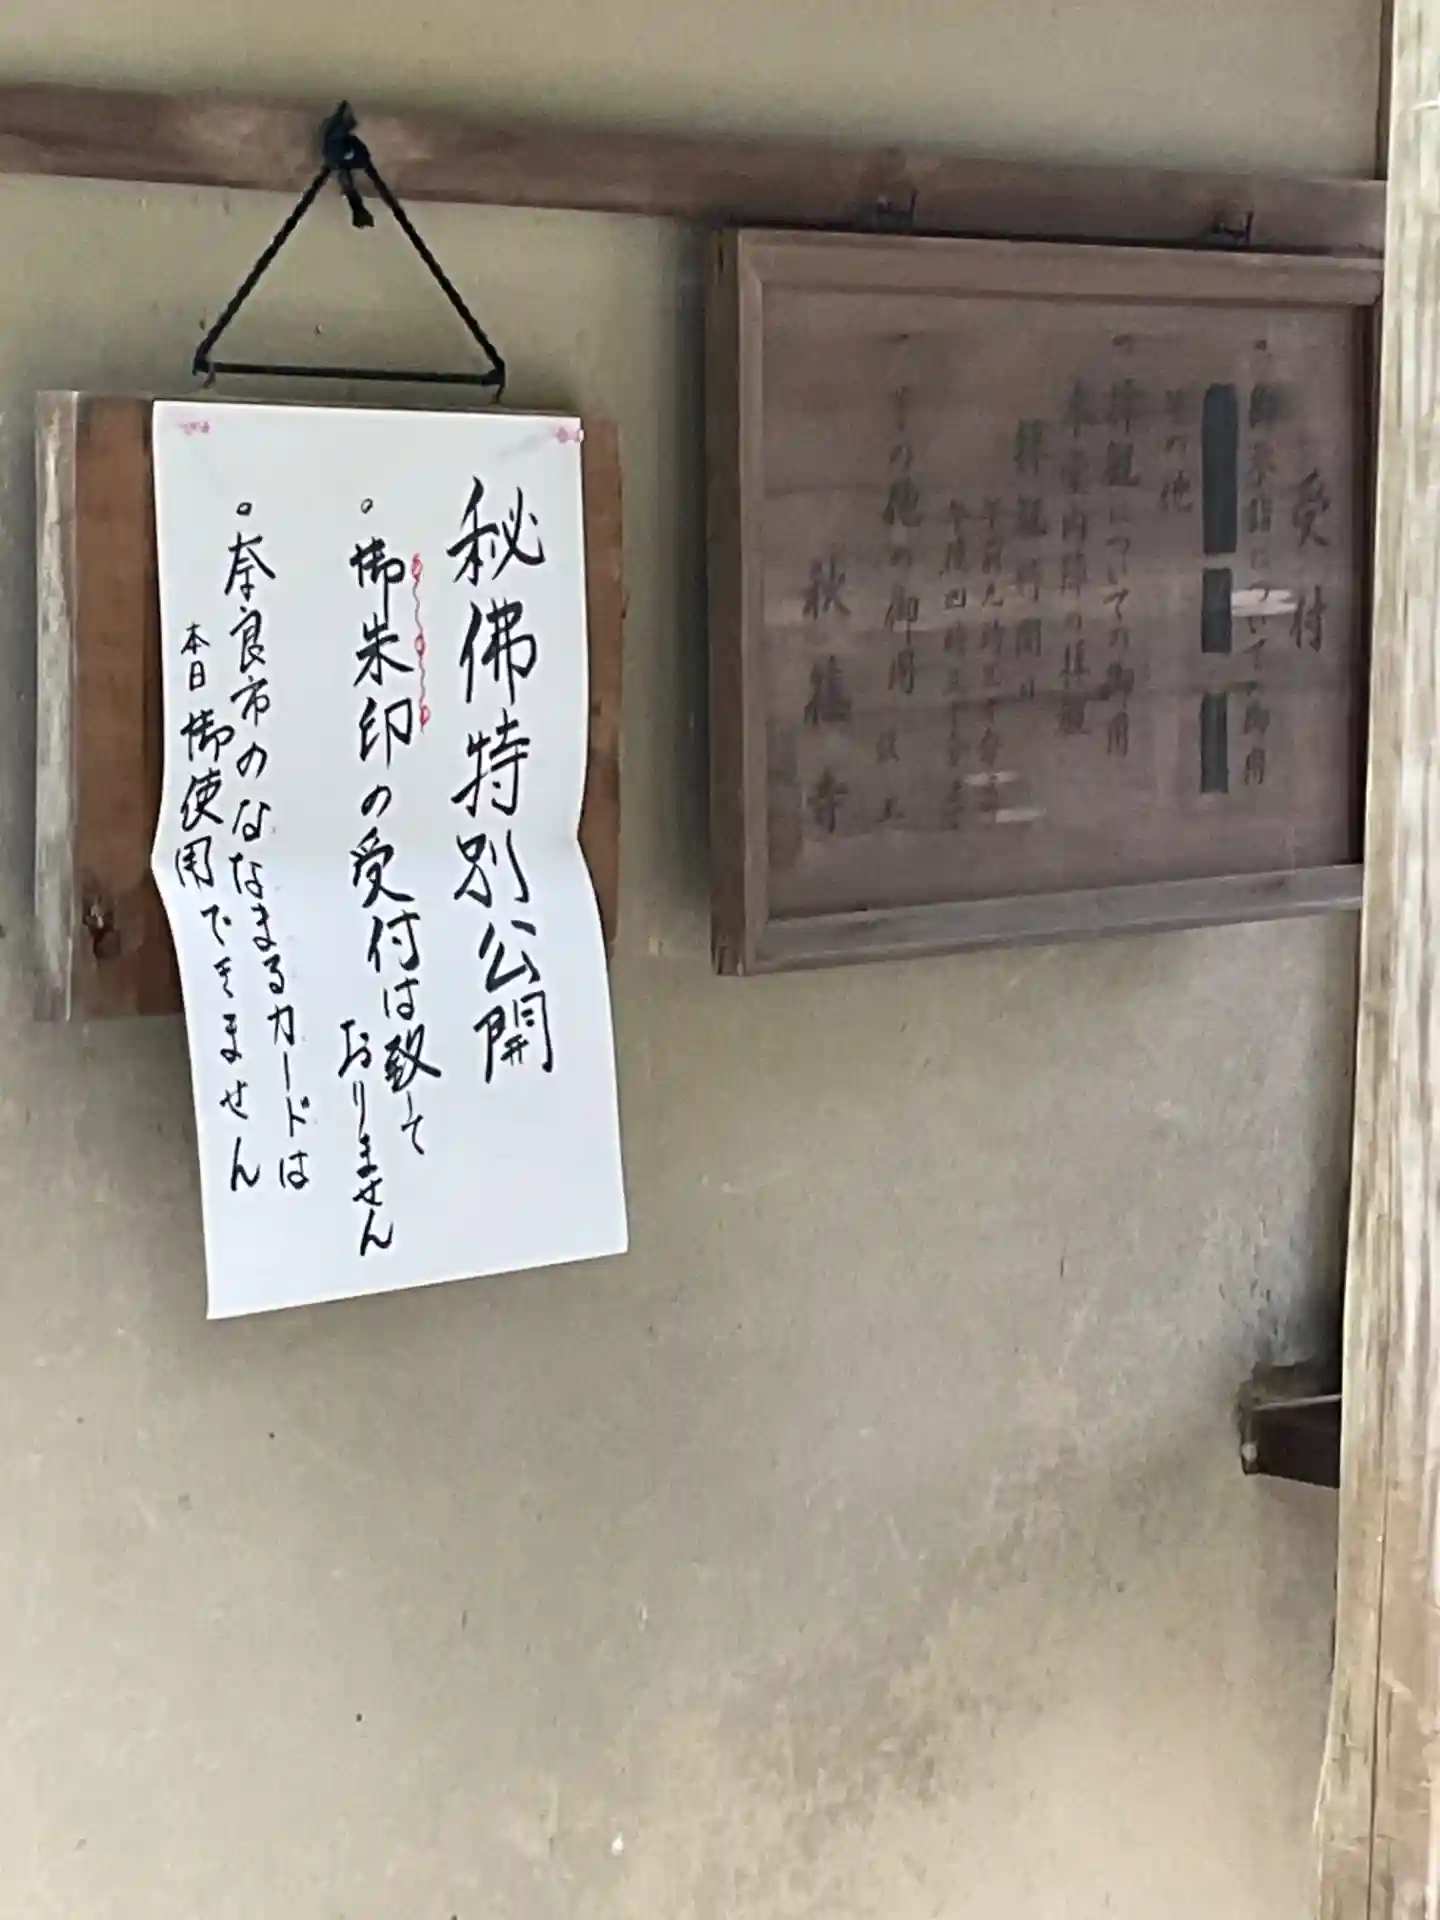 受付
御参詣についての御用
其の他
拝観についての御用
本堂内陣の拝観
拝観時間は
午前九時三十分
午後四時三十分
その他の御用
以上
秋篠寺
秘佛特別公開
。御朱印の受付は致して
おりません
。奈良市のななまるカードは
本日御使用できません